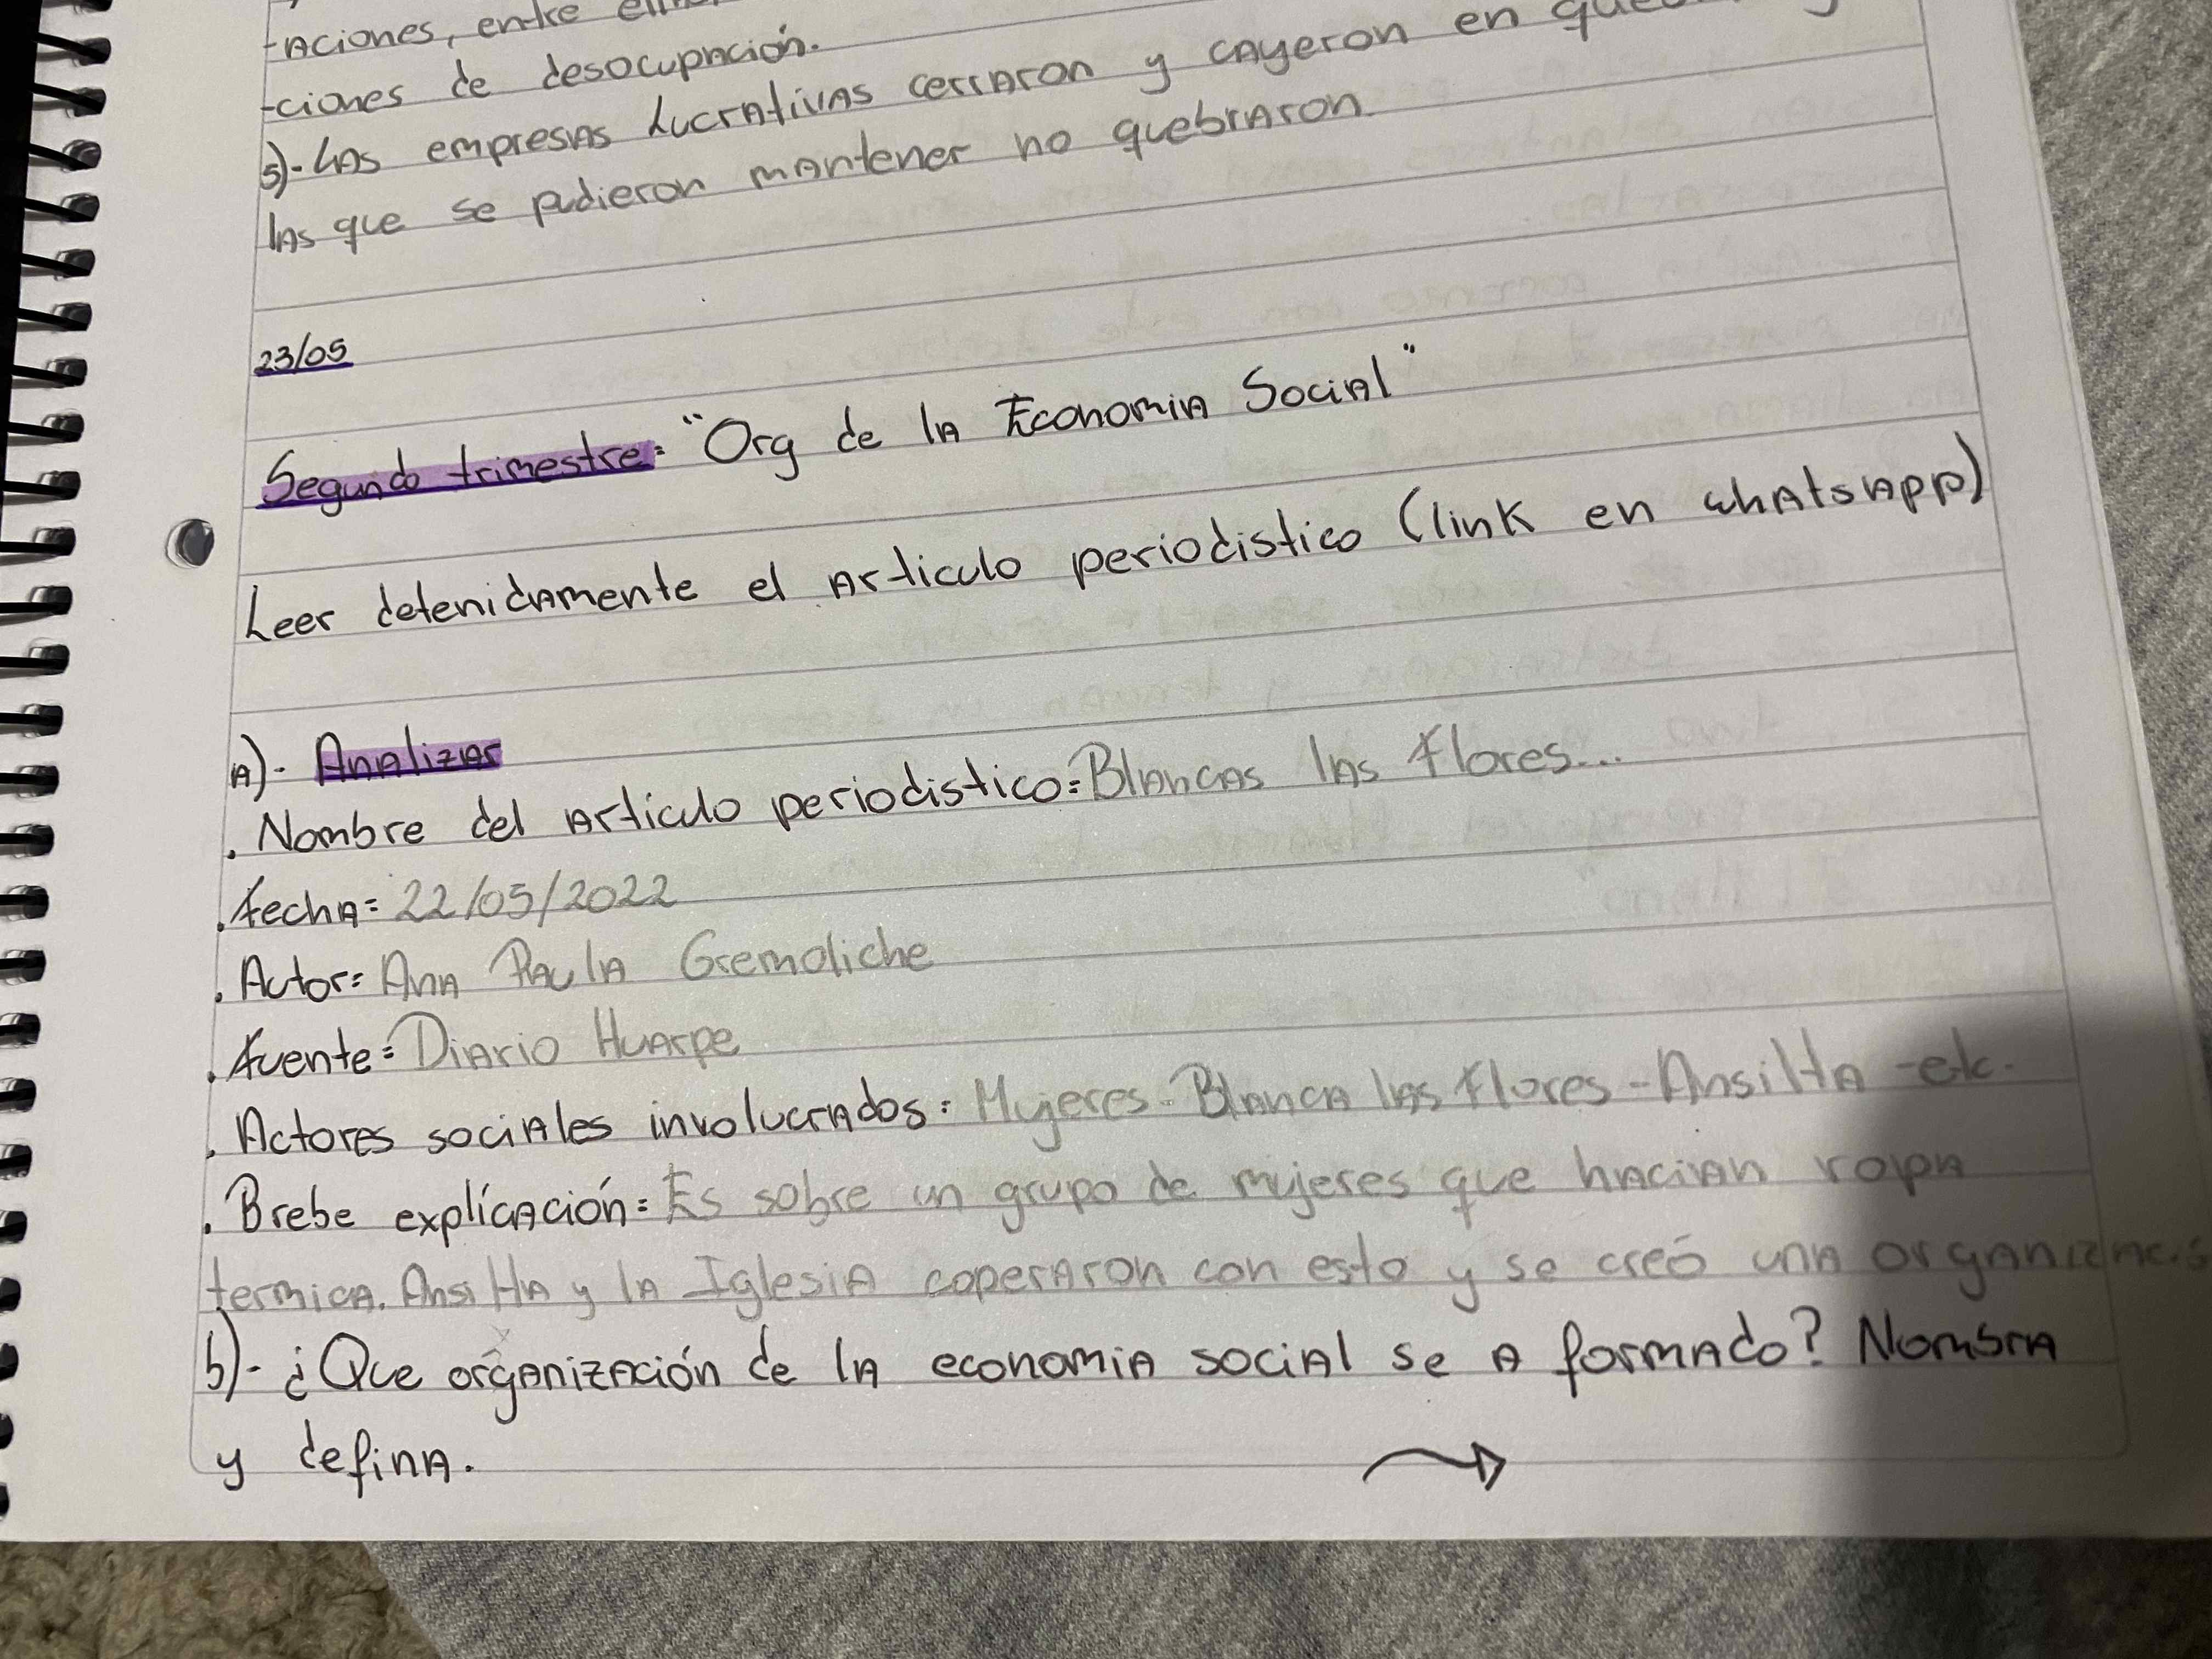 -aciones, entre
-ciones de desocupación.
5)- Las empresas lucrativas cerraron y cayeron en
las que se pudieron mantener no quebraron.
23/05
Segundo trimestre: "Org de la Economia Social"
Leer detenidamente el articulo periodistico (link en whatsapp)
A)- Analizar
. Nombre del articulo periodistico: Blancas las flores...
. fecha: 22/05/2022
. Actor: Ana Paula Gremoliche
. fuente: Diario Huarpe
. Actores sociales involucrados: Mujeres - Blanca las flores - Ansilta - etc.
. Brebe explícación: Es sobre un grupo de mujeres que hacian ropa
termica. Ansilta y la Iglesia coperaron con esto y se creó una
b)- ¿Que organización de la economia social se a formado? Nombra
y defina.